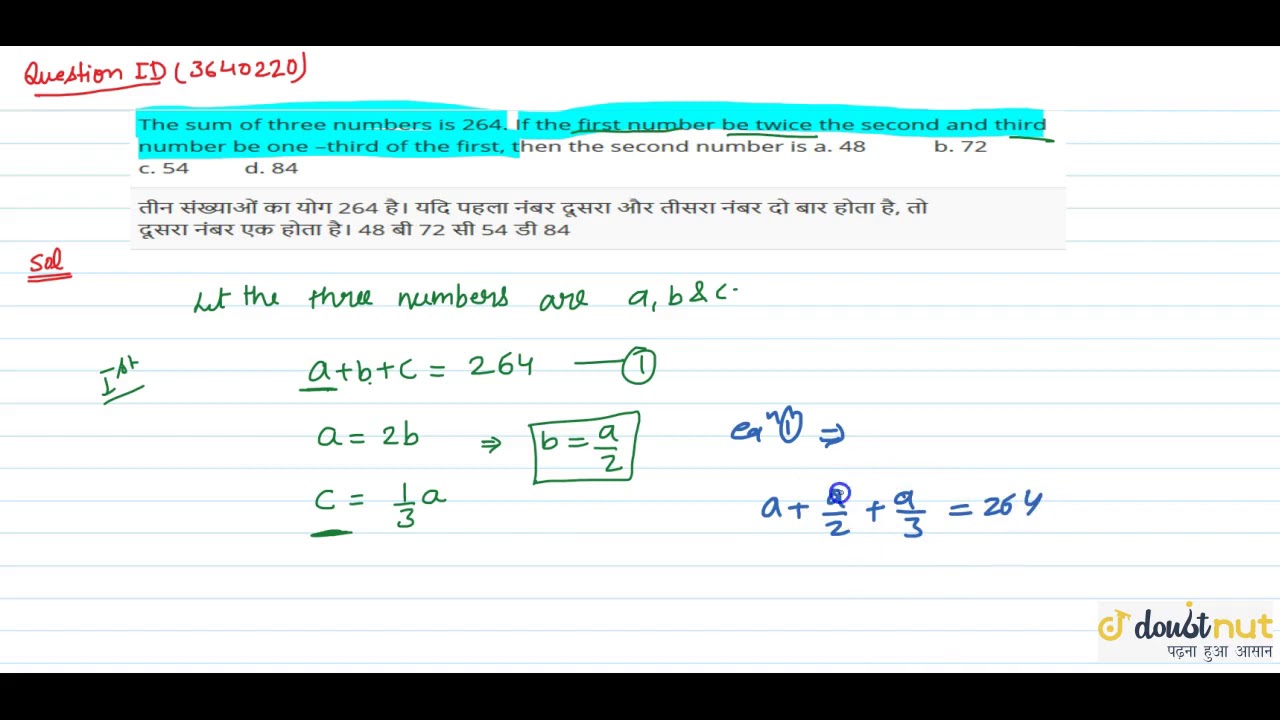 Question ID (3640220)
The sum of three numbers is 264. If the first number be twice the second and third
number be one –third of the first, then the second number is a. 48 b. 72
c. 54 d. 84
तीन संख्याओं का योग 264 है। यदि पहला नंबर दूसरा और तीसरा नंबर दो बार होता है, तो
दूसरा नंबर एक होता है। 48 बी 72 सी 54 डी 84
Sol
Let the three numbers are a, b & c.
Ist
a+b+c = 264 — ①
a = 2b ⇒ b = a/2
eqⁿ ① ⇒
c = 1/3 a
a + a/2 + a/3 = 264
doubtnut
पढ़ना हुआ आसान